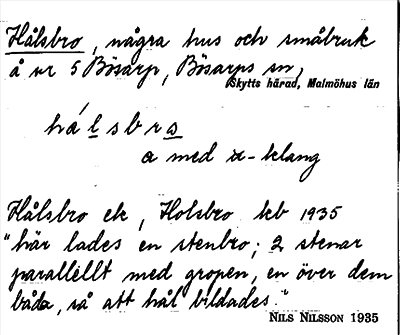 Hålsbro, några hus och småbruk
å nr 5 Bösarp, Bösarps sn,
Skytts härad, Malmöhus län
hálsbra
a med ä-klang
Hålsbro ek, Holsbro kb 1935
"här lades en stenbro; 2 stenar
parallellt med gropen, en över dem
båda, så att hål bildades."
NILS NILSSON 1935